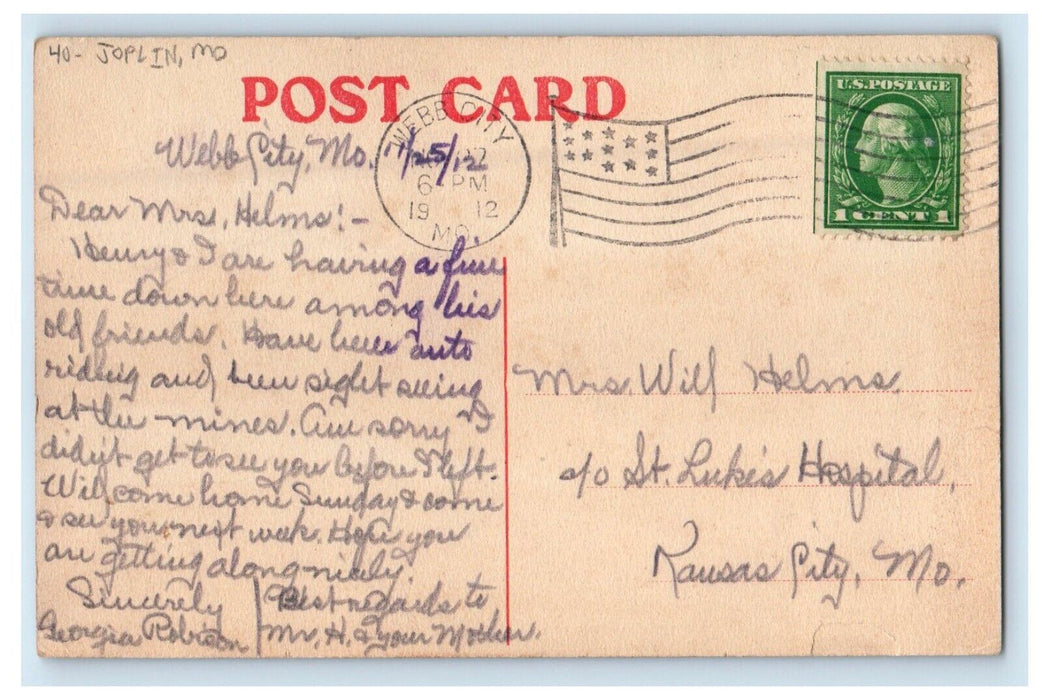 40- JOPLIN, MO
POST CARD
WEBB CITY
6 PM
19 12
MO.
U.S. POSTAGE
1 CENT 1
Webb City, Mo. 7/25/12
Dear Mrs. Helms!-
Henry & I are having a fine
time down here among his
old friends. Have been auto
riding and been sight seeing
at the mines. Am sorry I
didn't get to see you before I left.
Will come home Sunday & come
& see you next week. Hope you
are getting along nicely.
Sincerely
Georgia Robison
Best regards to
Mr. H. & your Mother.
Mrs. Will Helms.
c/o St. Luke's Hospital,
Kansas City, Mo.